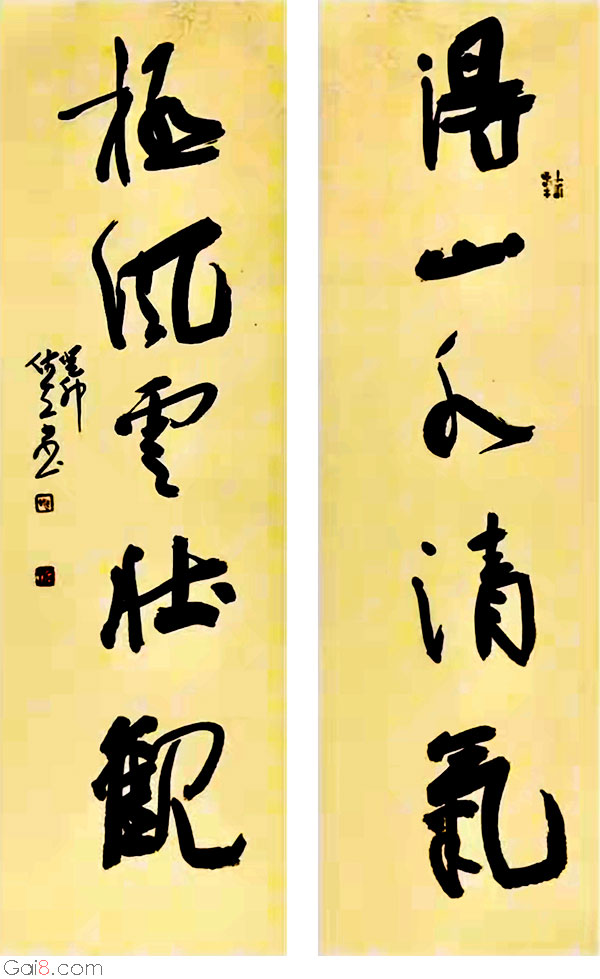 得山水清氣
極風雲壯觀
癸卯
Gai8.com